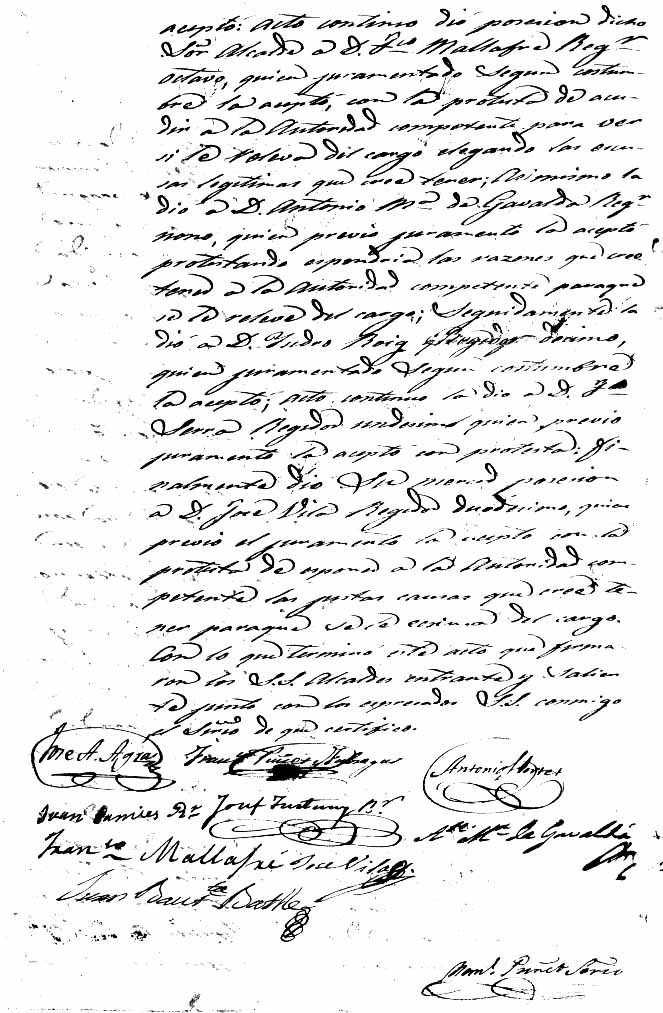 acepto: acto continuo dió posesion dicho
Sor. Alcalde a D. Fco. Mallafré Regr.
octavo, quien juramentado segun costum-
bre la aceptó, con la protesta de acu-
dir a la Autoridad competente para ver
si le releva del cargo alegando las escu-
sas legitimas que cree tener; Asimismo la
dio a D. Antonio Ma. de Gavaldá Regr.
nono, quien previo juramento la aceptó
protestando espondria las razones que cree
tener a la Autoridad competente paraque
se le releve del cargo; Seguidamente la
dió a D. Isidro Roig y Regidor decimo,
quien juramentado segun costumbre
la aceptó; acto continuo la dio a D. Jo.
Serra Regidor undecimo quien previo
juramento la aceptó con protesta: Fi-
nalmente dio Su merced posesion
a D. José Vila Regidor duodecimo, quien
previo el juramento la acepto con la
protesta de esponer a la Autoridad com-
petente las justas causas que cree te-
ner paraque se le ecsimiera del cargo.
Con lo que terminó este acto que firma-
ron los S.S. Alcaldes entrante y salien-
te junto con los espresados S.S. conmigo
el Srio. de que certifico.
Jose A. Agra
Antonio
Juan Rr. Josef Rr.
Ato. Ma. de Gavaldá
Franco. Mallafré José Vila
Juan Bauta. Batlle
Manl. Puñet Srio